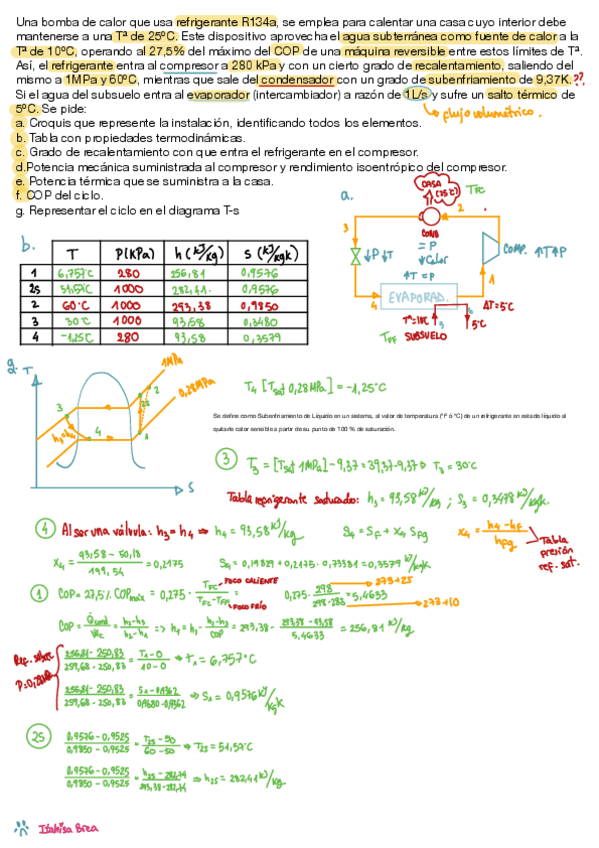 Una bomba de calor que usa refrigerante R134a, se emplea para calentar una casa cuyo interior debe
mantenerse a una Tª de 25ºC. Este dispositivo aprovecha el agua subterránea como fuente de calor a la
Tª de 10ºC, operando al 27,5% del máximo del COP de una máquina reversible entre estos límites de Tª.
Así, el refrigerante entra al compresor a 280 kPa y con un cierto grado de recalentamiento, saliendo del
mismo a 1MPa y 60ºC, mientras que sale del condensador con un grado de subenfriamiento de 9,37K. ??
Si el agua del subsuelo entra al evaporador (intercambiador) a razón de 1L/s y sufre un salto térmico de
5ºC. Se pide:
↳ flujo volumétrico.
a. Croquis que represente la instalación, identificando todos los elementos.
b. Tabla con propiedades termodinámicas.
c. Grado de recalentamiento con que entra el refrigerante en el compresor.
d.Potencia mecánica suministrada al compresor y rendimiento isoentrópico del compresor.
e. Potencia térmica que se suministra a la casa.
f. COP del ciclo.
g. Representar el ciclo en el diagrama T-s
a.
CASA (25ºC) TFC
COND
= P
↓Calor
3
2
↓P ↓T
COMP. ↑T↑P
↑T = P
4
EVAPORAD.
1
ΔT=5ºC
Tª=10ºC
5
6
5ºC
TFF SUBSUELO
b.
T P(KPa) h (KJ/Kg) s (KJ/KgK)
1 6,757ºC 280 256,81 0,9576
2s 51,57ºC 1000 282,41 0,9576
2 60ºC 1000 293,38 0,9850
3 30ºC 1000 93,58 0,3480
4 -1,25ºC 280 93,58 0,3579
g. T
1MPa
0,28MPa
2
2s
3
h3=h4
4
1
S
T4 [Tsat 0,28MPa] = -1,25ºC
Se define como Subenfriamiento de Líquido en un sistema, al valor de temperatura (°F ó °C) de un refrigerante en estado líquido al
quitarle calor sensible a partir de su punto de 100 % de saturación.
3 T3 = [Tsat 1MPa] - 9,37 = 39,37-9,37 ⇒ T3 = 30ºC
Tabla refrigerante saturado: h3 = 93,58 KJ/Kg ; S3 = 0,3478 KJ/KgK
4 Al ser una válvula: h3 = h4 ⇒ h4 = 93,58 KJ/Kg S4 = Sf + X4 Sfg X4 = h4-hf / hfg
Tabla presión ref. sat.
X4 = 93,58 - 50,18 / 199,54 = 0,2175 S4 = 0,19829 + 0,2175 · 0,73381 = 0,3579 KJ/KgK
1 COP = 27,5% COPmáx = 0,275 · TFC / TFC-TFF = 0,275 · 298 / 298-283 = 5,4633
FOCO CALIENTE
FOCO FRÍO
273+25
273+10
COP = Q̇cond / Ẇc = h2-h3 / h2-h1 ⇒ h1 = h2 - h2-h3 / COP = 293,38 - 293,38 - 93,58 / 5,4633 = 256,81 KJ/Kg
Ref. sobrec
P=0,28MPa
256,81 - 250,83 / 259,68 - 250,83 = T1-0 / 10-0 ⇒ T1 = 6,757ºC
256,81 - 250,83 / 259,68 - 250,83 = S1-0,9362 / 0,9680-0,9362 ⇒ S1 = 0,9576 KJ/KgK
2S 0,9576 - 0,9525 / 0,9850 - 0,9525 = T2S-50 / 60-50 ⇒ T2S = 51,57ºC
0,9576 - 0,9525 / 0,9850 - 0,9525 = h2S-282,74 / 293,38-282,74 ⇒ h2S = 282,41 KJ/Kg
Itahisa Brea